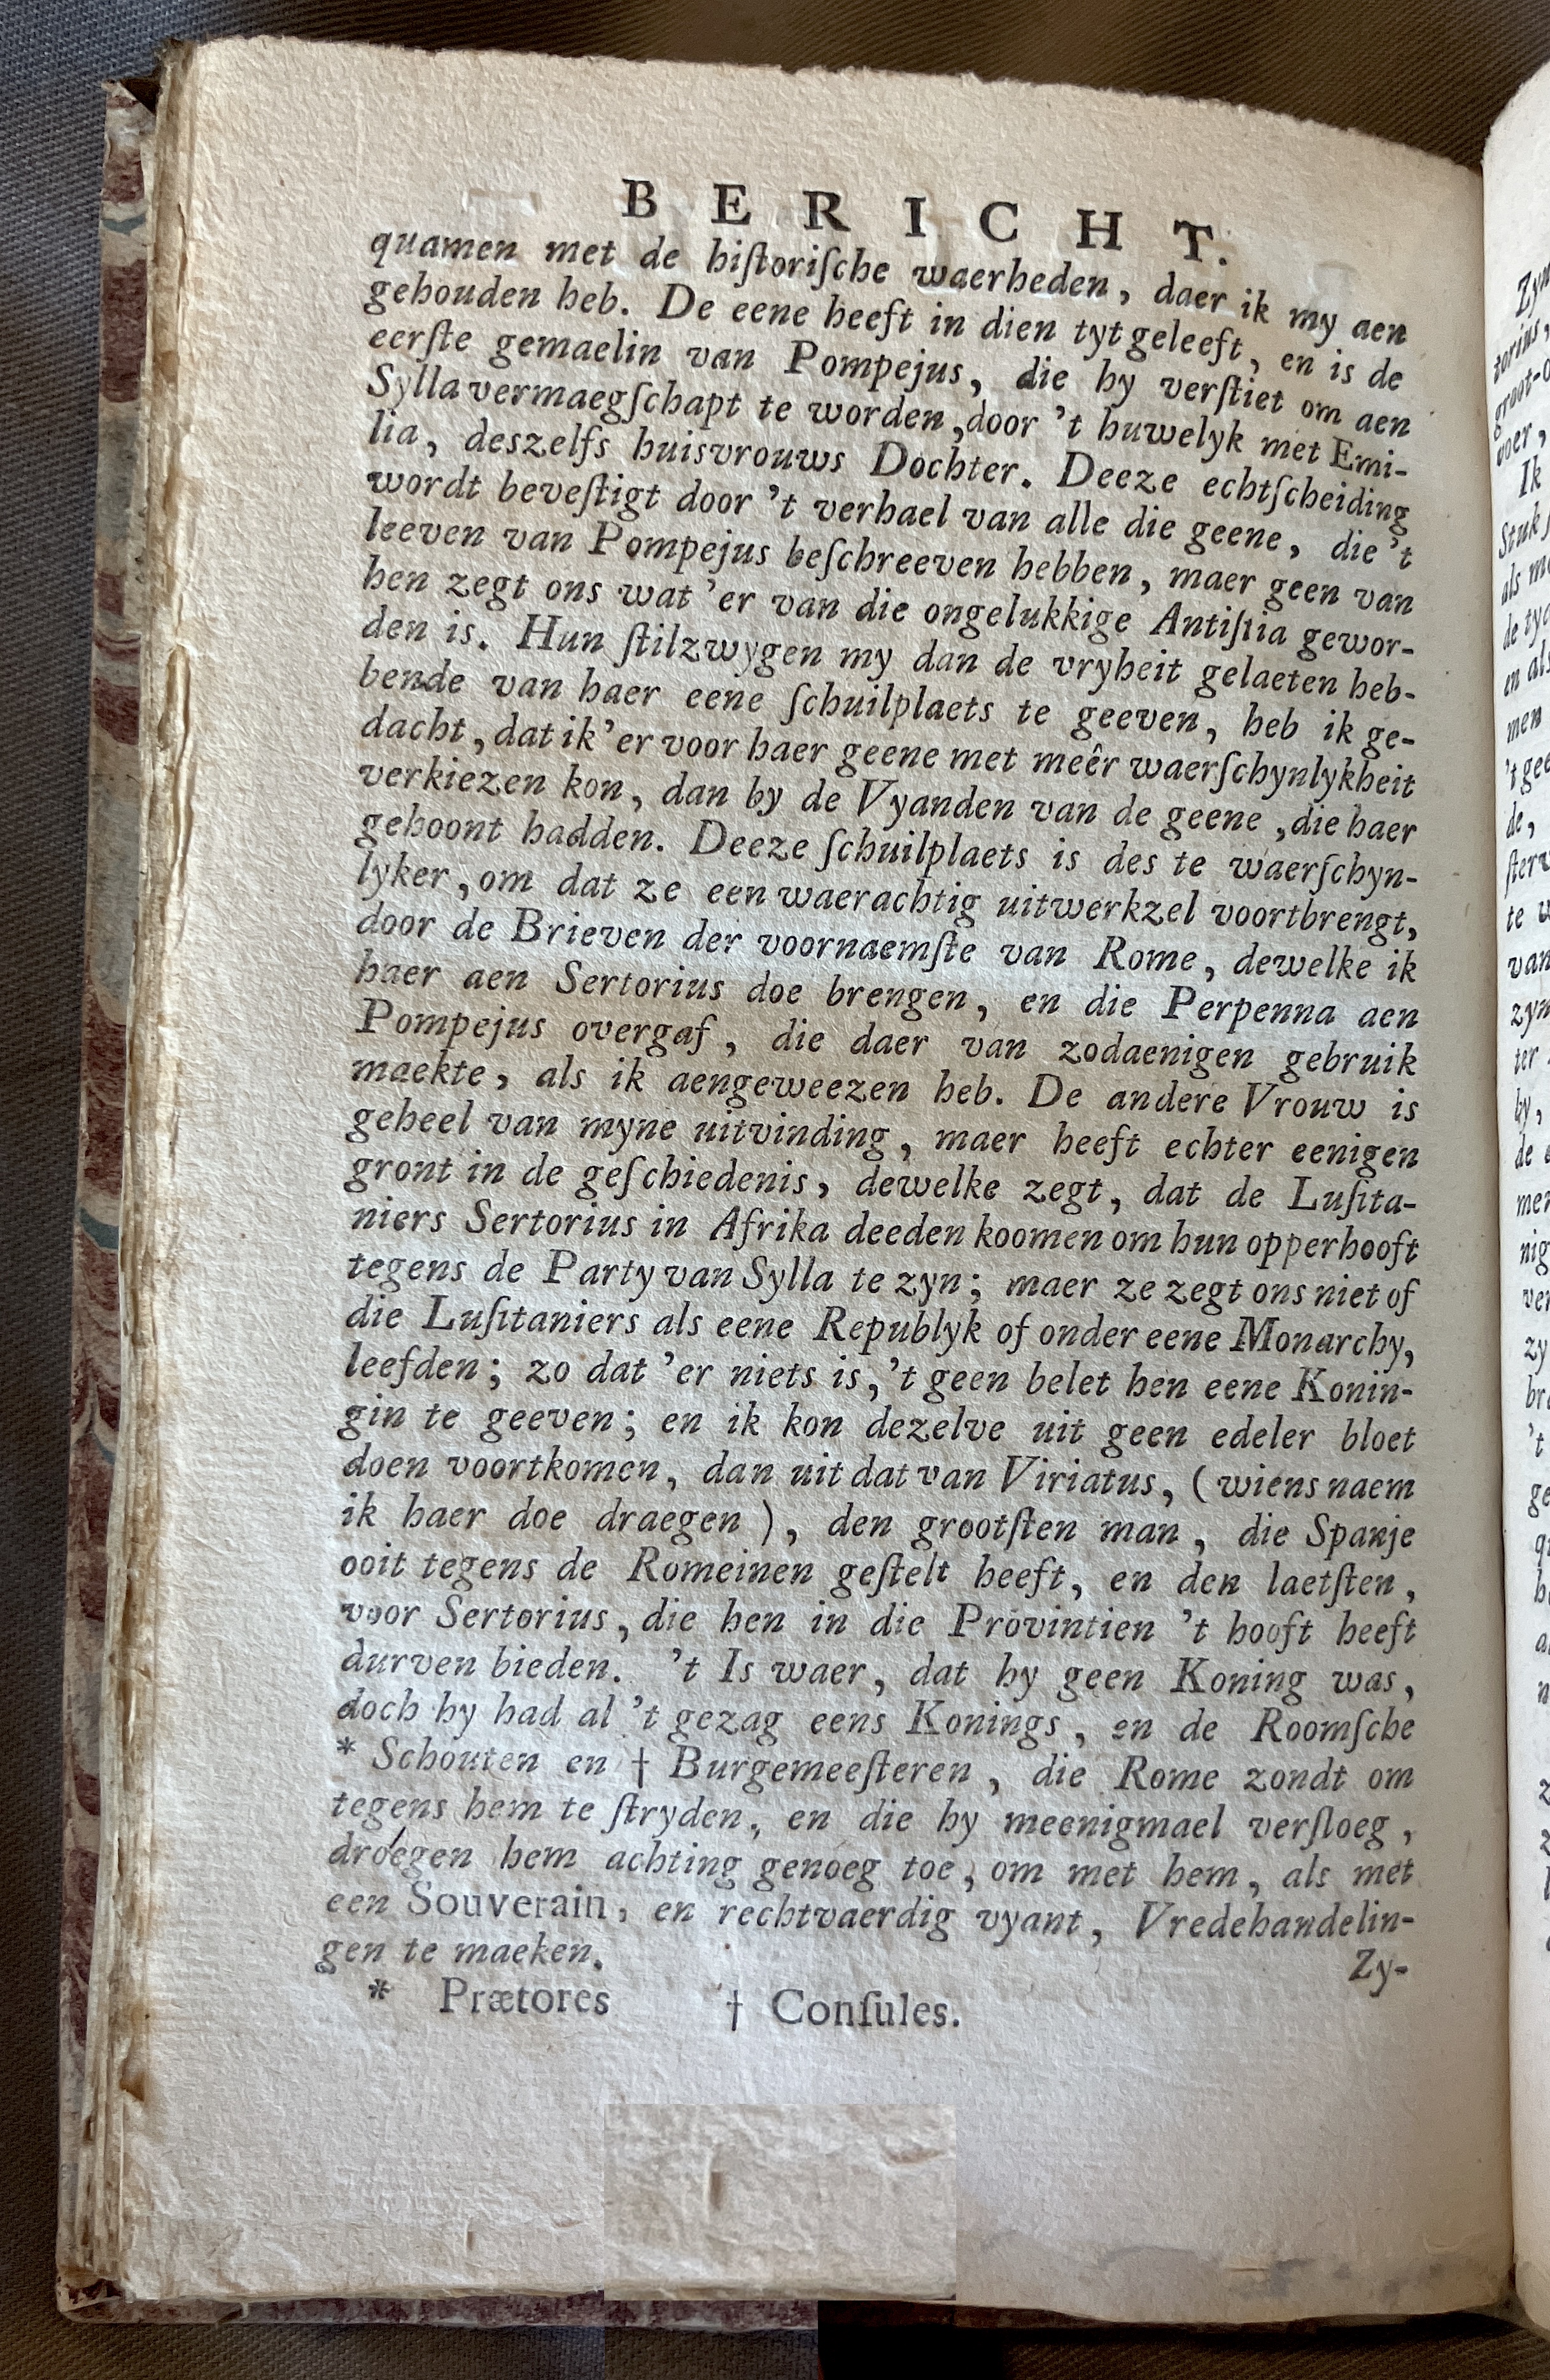 BERICHT.
quamen met de hiſtoriſche waerheden, daer ik my aen
gehouden heb. De eene heeft in dien tyt geleeft, en is de
eerſte gemaelin van Pompejus, die hy verſtiet om aen
Sylla vermaegſchapt te worden, door 't huwelyk met Emi-
lia, deszelfs huisvrouws Dochter. Deeze echtſcheiding
wordt beveſtigt door 't verhael van alle die geene, die 't
leeven van Pompejus beſchreeven hebben, maer geen van
hen zegt ons wat 'er van die ongelukkige Antiſtia gewor-
den is. Hun ſtilzwygen my dan de vryheit gelaeten heb-
bende van haer eene ſchuilplaets te geeven, heb ik ge-
dacht, dat ik 'er voor haer geene met meêr waerſchynlykheit
verkiezen kon, dan by de Vyanden van de geene, die haer
gehoont hadden. Deeze ſchuilplaets is des te waerſchyn-
lyker, om dat ze een waerachtig uitwerkzel voortbrengt,
door de Brieven der voornaemſte van Rome, dewelke ik
haer aen Sertorius doe brengen, en die Perpenna aen
Pompejus overgaf, die daer van zodaenigen gebruik
maekte, als ik aengeweezen heb. De andere Vrouw is
geheel van myne uitvinding, maer heeft echter eenigen
gront in de geſchiedenis, dewelke zegt, dat de Luſita-
niers Sertorius in Afrika deeden koomen om hun opperhooft
tegens de Party van Sylla te zyn; maer ze zegt ons niet of
die Luſitaniers als eene Republyk of onder eene Monarchy,
leefden; zo dat 'er niets is, 't geen belet hen eene Konin-
gin te geeven; en ik kon dezelve uit geen edeler bloet
doen voortkomen, dan uit dat van Viriatus, (wiens naem
ik haer doe draegen), den grootſten man, die Spanje
ooit tegens de Romeinen geſtelt heeft, en den laetſten,
voor Sertorius, die hen in die Provintien 't hooft heeft
durven bieden. 't Is waer, dat hy geen Koning was,
doch hy had al 't gezag eens Konings, en de Roomſche
* Schouten en † Burgemeeſteren, die Rome zondt om
tegens hem te ſtryden, en die hy meenigmael verſloeg,
droegen hem achting genoeg toe, om met hem, als met
een Souverain, en rechtvaerdig vyant, Vredehandelin-
gen te maeken.
Zy-
* Prætores † Conſules.